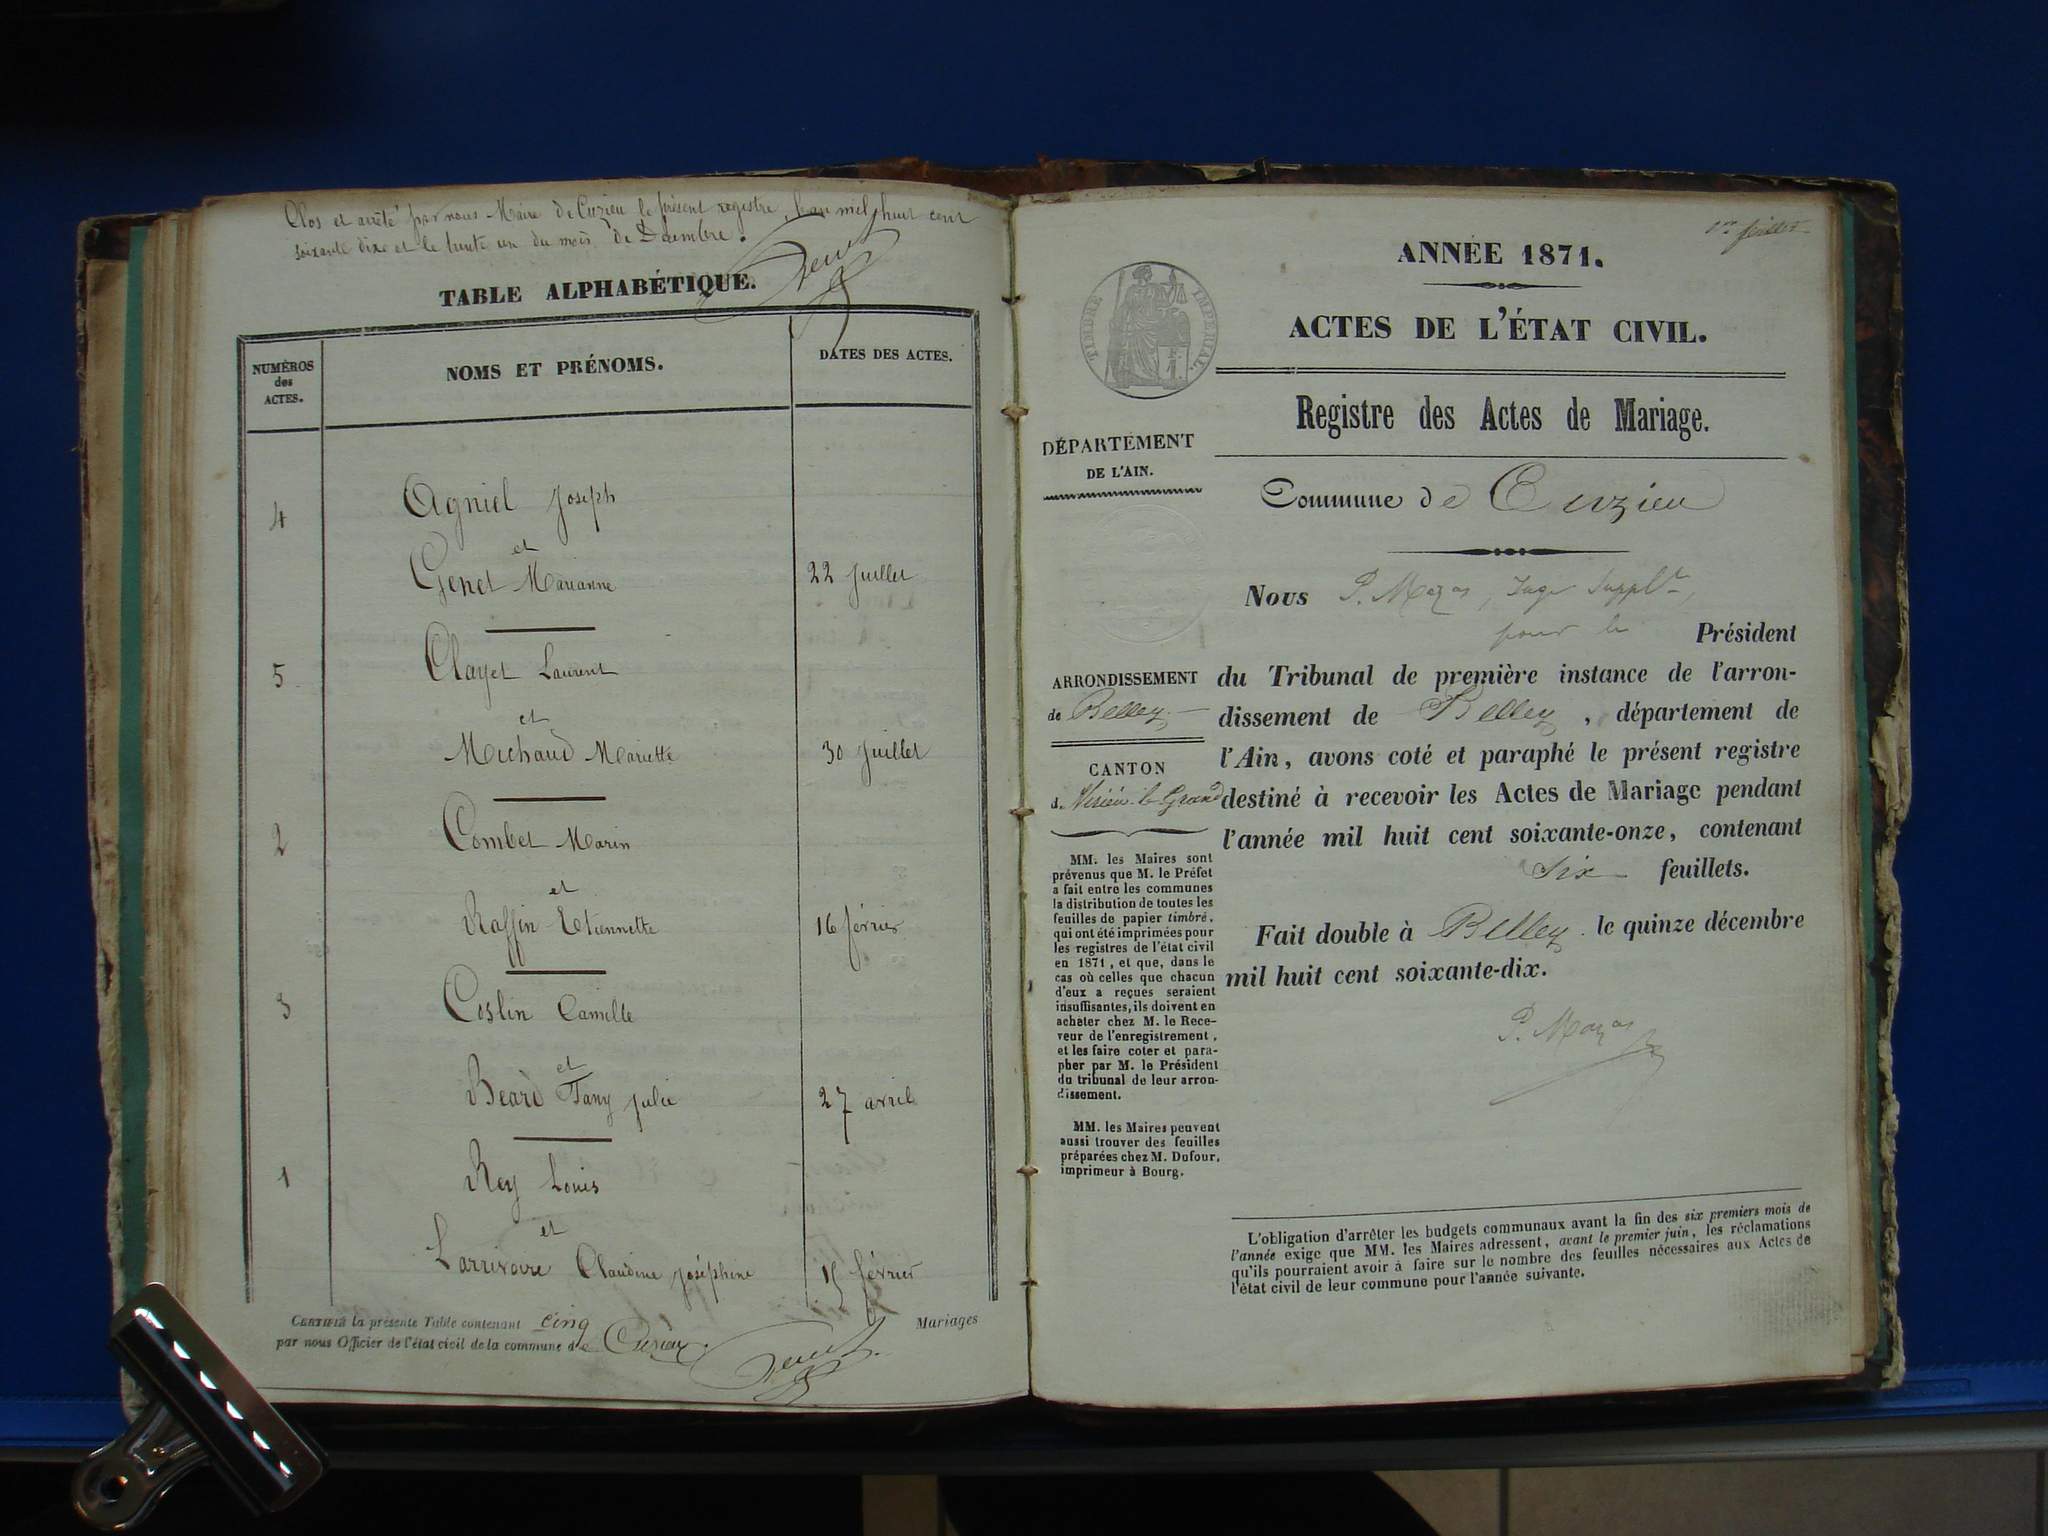 Clos et arrêté par nous Maire de Cuzieu le présent registre, l'an mil huit cent
soixante dixe et le trente un du mois de Décembre.
TABLE ALPHABÉTIQUE.
NUMÉROS
des
ACTES.
NOMS ET PRÉNOMS.
DATES DES ACTES.
4
Agniel Joseph
et
Genet Marianne
22 Juillet
5
Clayet Laurent
et
Michaud Mariette
30 Juillet
2
Combet Marin
et
Raffin Etiennette
16 février
3
Coslin Camille
et
Béard Fany Julie
27 avril
1
Rey Louis
et
Larrivoire Claudine Joséphine
15 février
CERTIFIÉ la présente Table contenant cinq Mariages
par nous Officier de l'état civil de la commune de Cuzieu.
1er feuillet
ANNÉE 1871.
TIMBRE IMPÉRIAL.
ACTES DE L'ÉTAT CIVIL.
Registre des Actes de Mariage.
DÉPARTEMENT
DE L'AIN.
Commune de Cuzieu
Nous P. Mazas, Juge Suppl.t,
pour le Président
ARRONDISSEMENT
de Belley
CANTON
d. Virieu-le-Grand
du Tribunal de première instance de l'arron-
dissement de Belley, département de
l'Ain, avons coté et paraphé le présent registre
destiné à recevoir les Actes de Mariage pendant
l'année mil huit cent soixante-onze, contenant
six feuillets.
MM. les Maires sont
prévenus que M. le Préfet
a fait entre les communes
la distribution de toutes les
feuilles de papier timbré,
qui ont été imprimées pour
les registres de l'état civil
en 1871, et que, dans le
cas où celles que chacun
d'eux a reçues seraient
insuffisantes, ils doivent en
acheter chez M. le Rece-
veur de l'enregistrement,
et les faire coter et para-
pher par M. le Président
du tribunal de leur arron-
dissement.
MM. les Maires peuvent
aussi trouver des feuilles
préparées chez M. Dufour,
imprimeur à Bourg.
Fait double à Belley. le quinze décembre
mil huit cent soixante-dix.
P. Mazas
L'obligation d'arrêter les budgets communaux avant la fin des six premiers mois de
l'année exige que MM. les Maires adressent, avant le premier juin, les réclamations
qu'ils pourraient avoir à faire sur le nombre des feuilles nécessaires aux Actes de
l'état civil de leur commune pour l'année suivante.